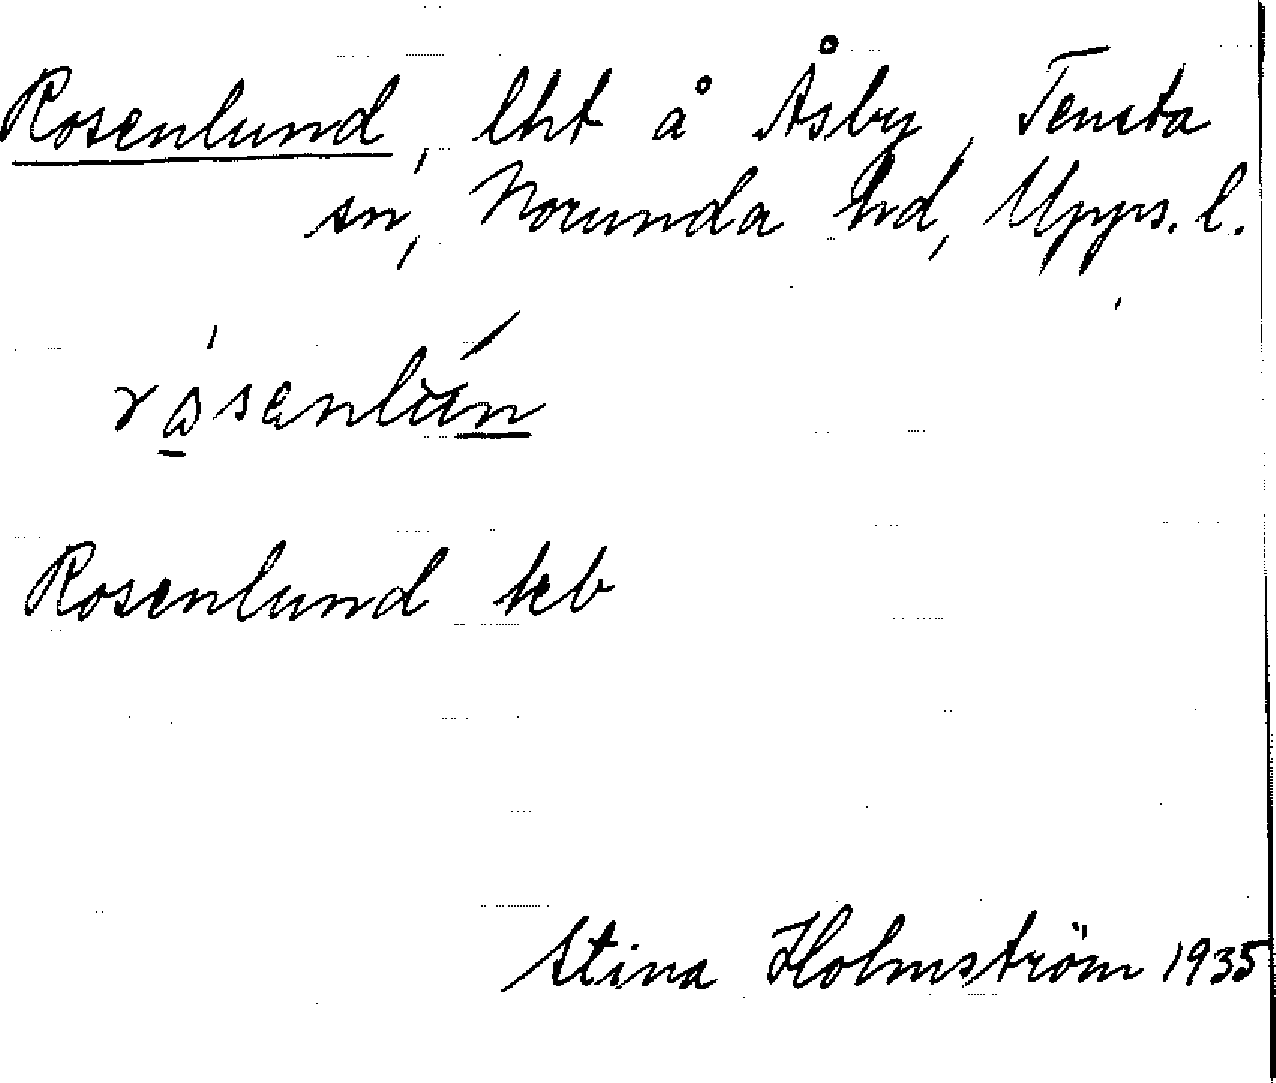 Rosenlund, lht å Åsby, Tensta
sn, Norunda hd, Upps. l.
Rosenlund keb
Stina Holmström 1935